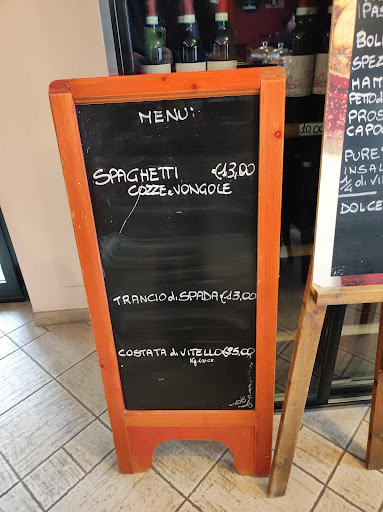 MENU:
SPAGHETTI €13,00
COZZE e VONGOLE
TRANCIO di SPADA €13,00
COSTATA di VITELLO €35,00
10,00
PAS
BOL
SPEZ
HAM
PETTO d
PROS
CAPO
PURE'
INSAL
½ di VI
DOLCE